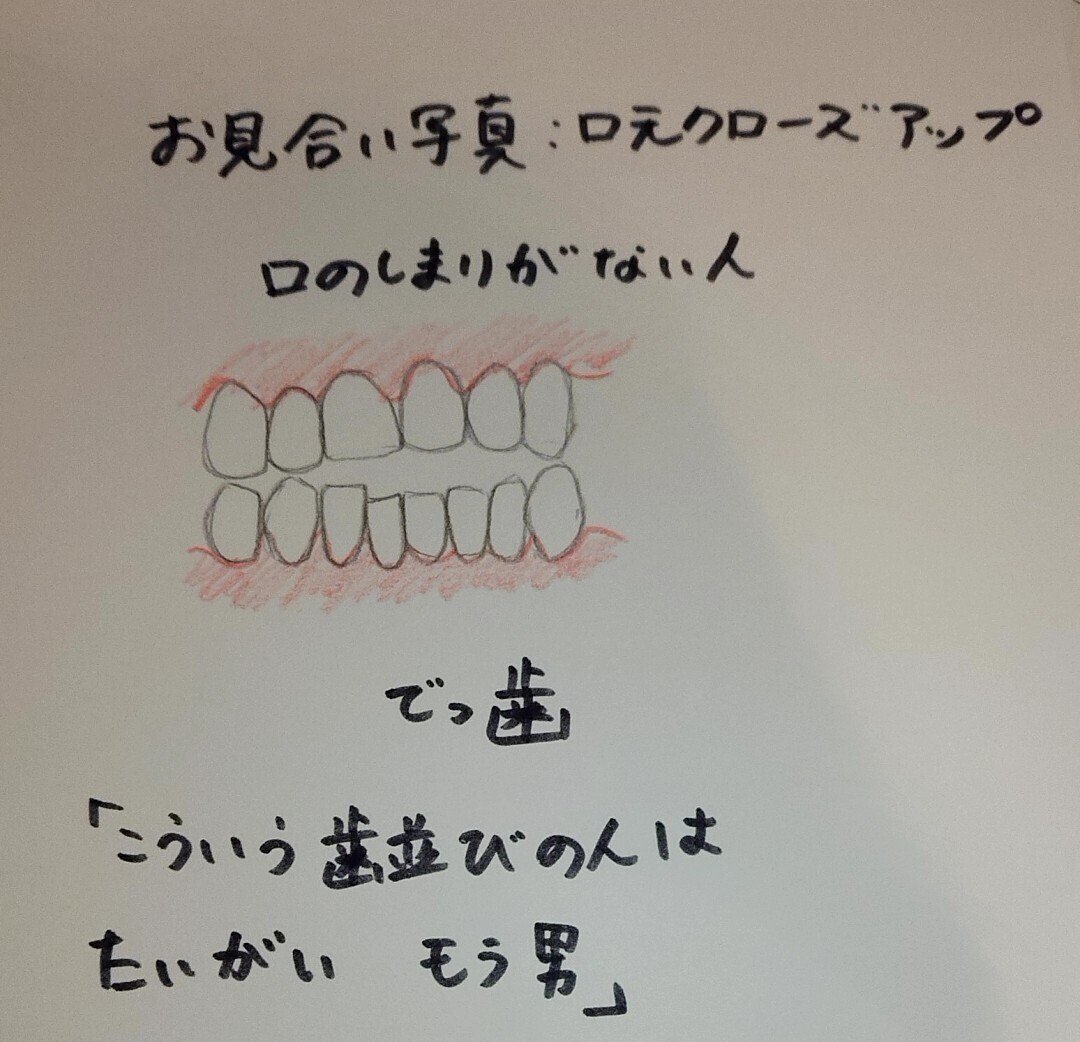 お見合い写真:口元クローズアップ
口のしまりがない人
でっ歯
「こういう歯並びの人は
たいがい もう男」